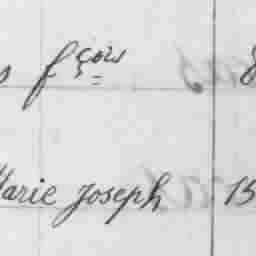 s fçois
Marie Joseph 15